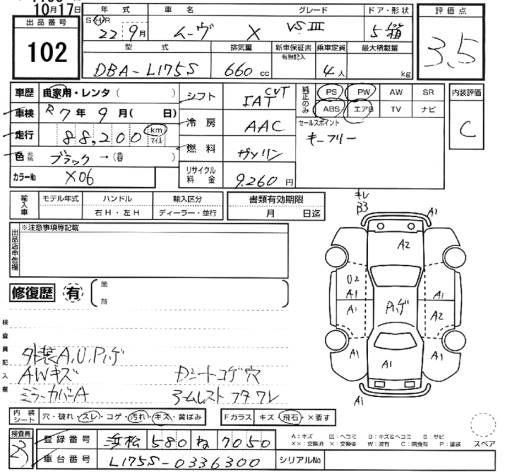 10月17日
出品番号 102
年式 車名 グレード ドア・形状 評価点
S・H・R 22年9月 ムーヴ X VSⅢ 5箱 3.5
型式 排気量 新車保証書 有無記入 乗車定員 最大積載量
DBA-L175S 660cc 4人 kg
車歴 自家用・レンタ( ) シフト IAT CVT 純正のみ PS PW AW SR 内装評価
車検 R7年9月( 日) ABS エアB TV ナビ C
走行 88,200 km マイル 冷房 AAC セールスポイント
キーフリー
色 ブラック→( ) 燃料 ガソリン
カラーNo X06 リサイクル料金 9,260円
輸入車 モデル年式 ハンドル 輸入区分 書類有効期限
右H・左H ディーラー・並行 月 日迄
出品店申告欄 ※注意事項等記載
修復歴 有 箇所
検査員記入欄
外装A,U,Pハゲ
AWキズ Dシートコゲ穴
ミラーカバーA アームレストフタワレ
キレ
B3 A1
A2
U2 A1
A1 Pハゲ A2
A1 A1
A1
A1 A1
内装シート 穴・破れ・スレ・コゲ・汚れ・キズ・黄ばみ Fガラス キズ・飛石・X要す スペア
検査員 登録番号 浜松 580 ね 7050
車台番号 L175S-0336300 シリアルNo